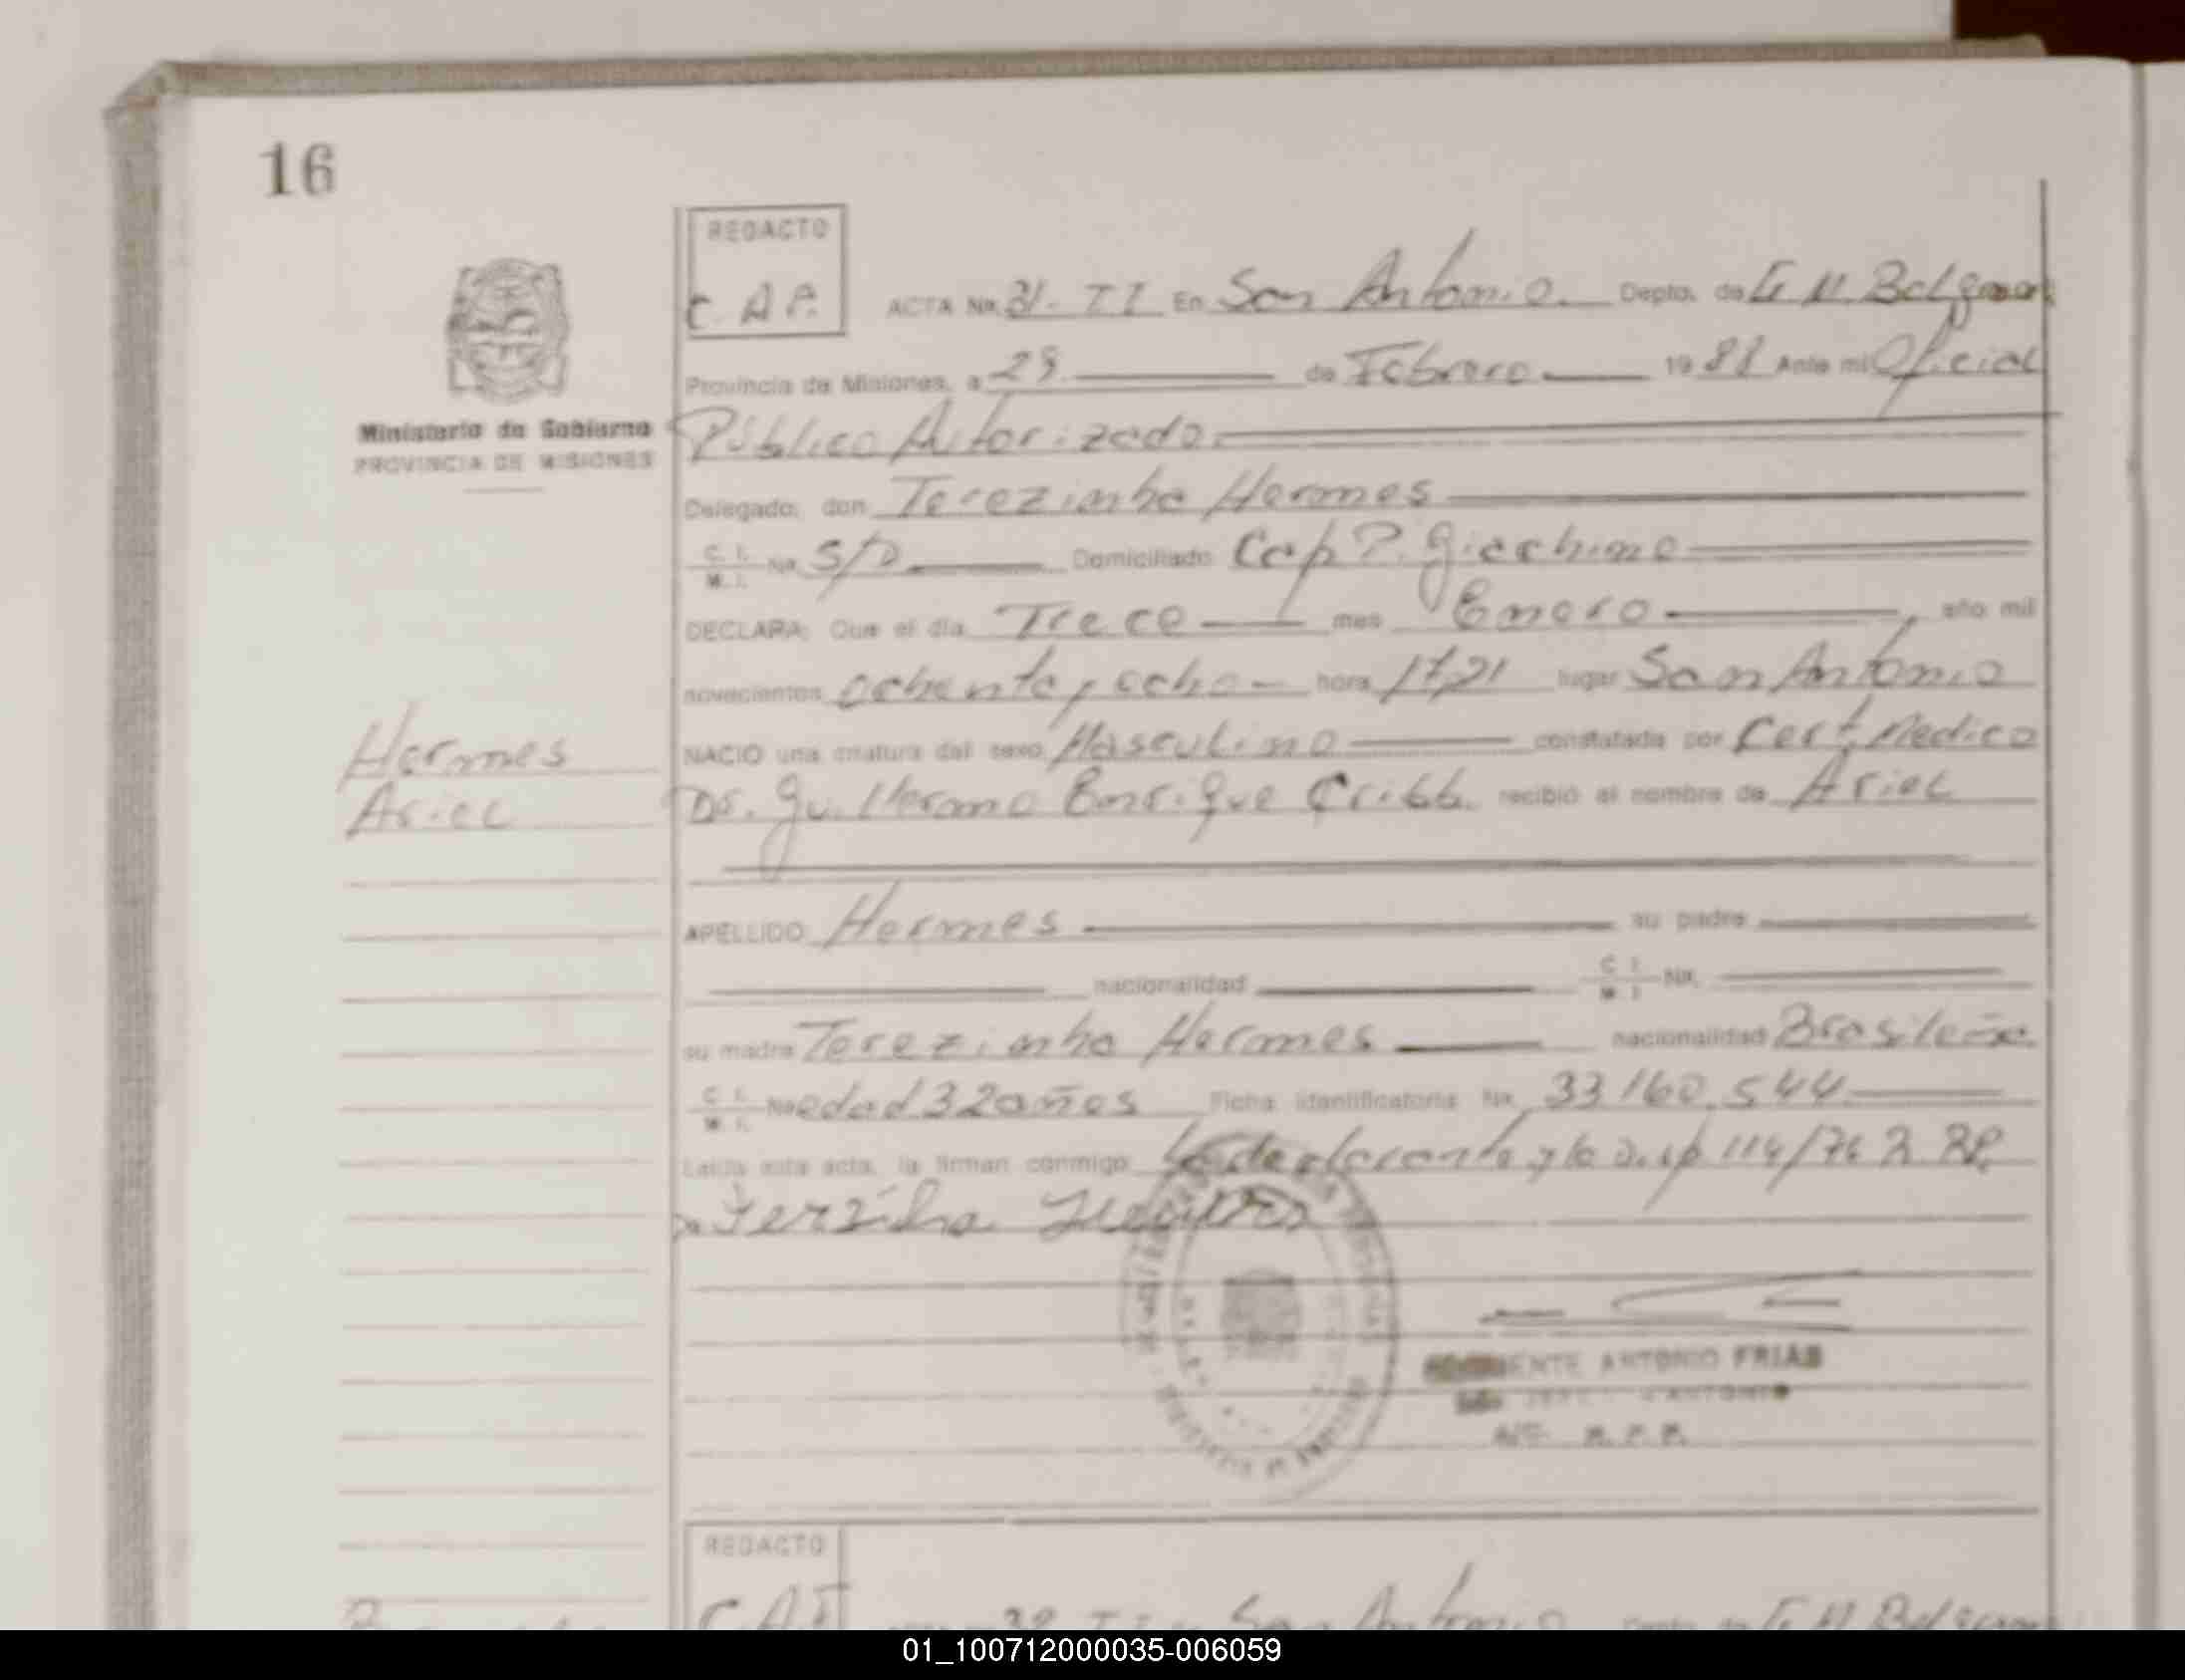 16
REDACTO
C. A P. ACTA No. 31- TI En San Antonio. Depto. de G M Belgrano
Provincia de Misiones, a 29 de Febrero 1988 Ante mi Oficial
Ministerio de Gobierno
PROVINCIA DE MISIONES
Público Autorizado.
Delegado, don Terezinha Hermes
C. I. M. I. No. S/D Domiciliado Cap P. Giachino
DECLARA: Que el día Trece mes Enero, año mil
novecientos ochenta y ocho hora lugar San Antonio
Hermes
Ariel
NACIO una criatura del sexo Masculino constatada por Cert. Medico
Dr. Guillermo Enrique Cribb. recibió el nombre de Ariel
APELLIDO Hermes su padre
nacionalidad C. I. M. I. No.
su madre Terezinha Hermes nacionalidad Brasileña
C. I. M. I. No edad 32 años Ficha identificatoria No. 33 160.544
Leída esta acta, la firman conmigo La declarante y la D. 114/76
ANTONIO FRIAS
REDACTO
San Antonio Depto. de G M Belgrano
01_100712000035-006059